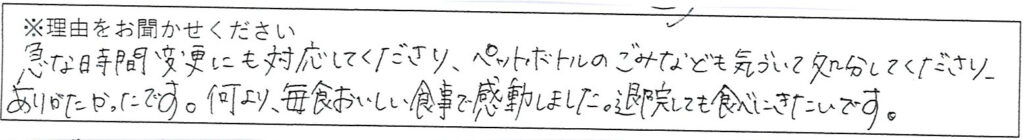 ※理由をお聞かせください
急な時間変更にも対応してくださり、ペットボトルのごみなども気づいて処分してくださり
ありがたかったです。何より、毎食おいしい食事で感動しました。退院しても食べにきたいです。